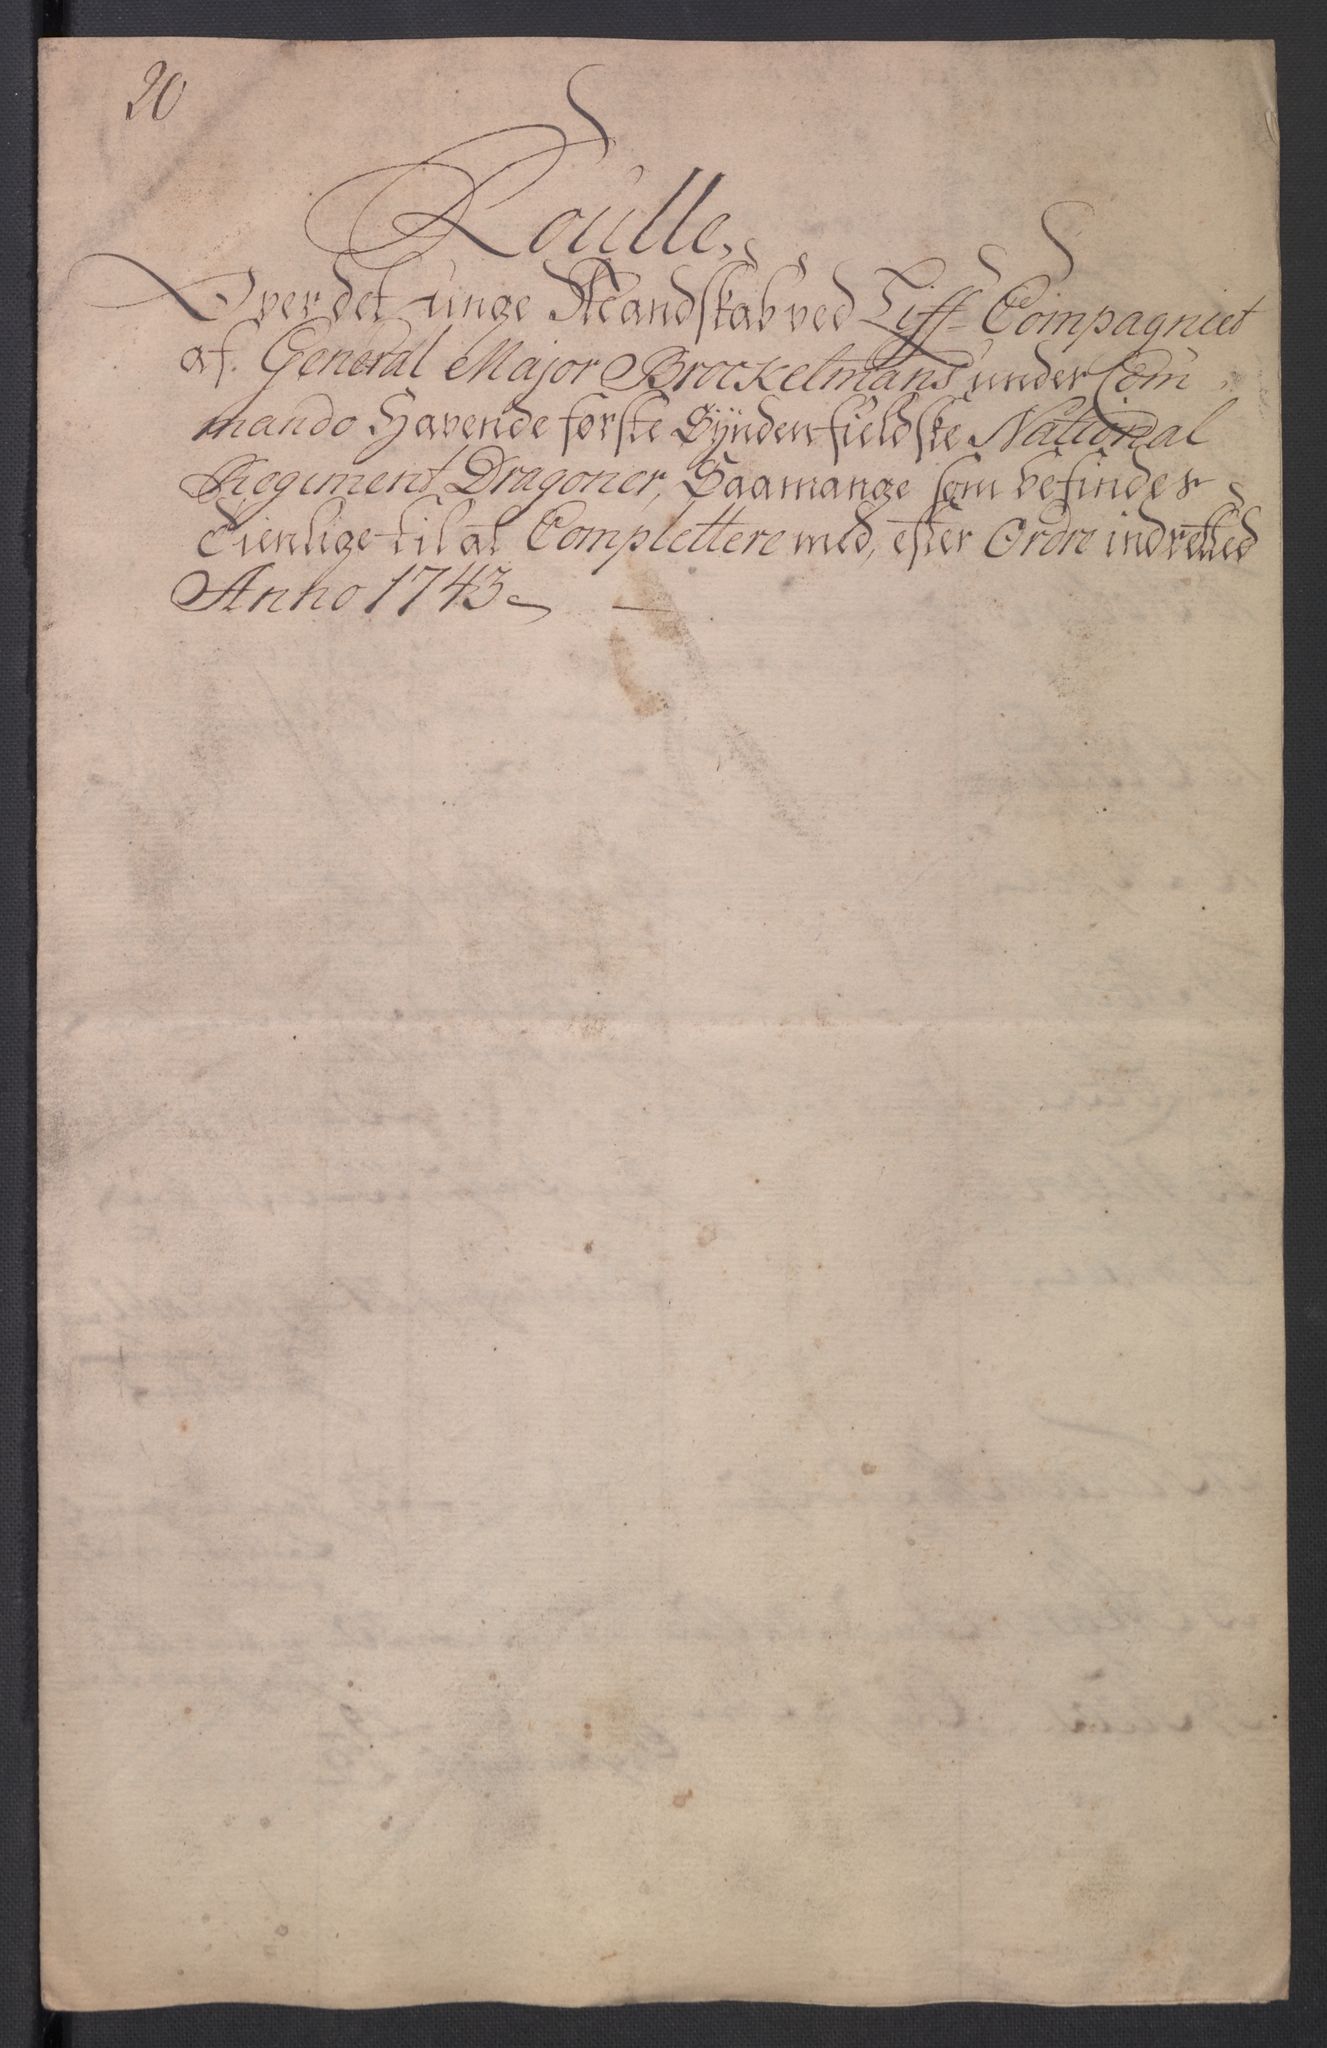 20
Roulle,
Over det unge Mandskab ved Liff-Compagniet
af General Major Brockelmans under Com
mando Havende første Synden fieldske National
Regiment Dragoner, Saamange som befindes
Tienlige til at Complettere med, efter Ordre indretted
Anno 1743